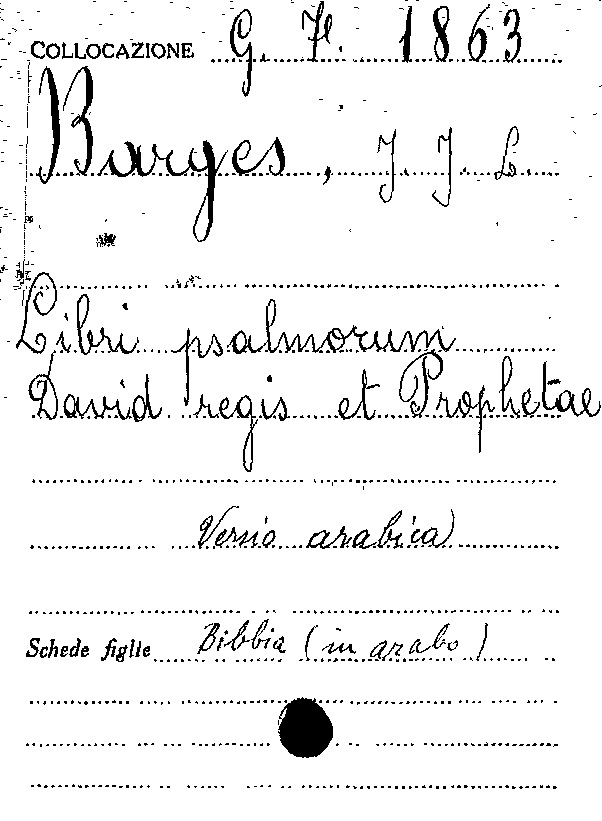 COLLOCAZIONE G. H. 1863
Barges, J. J. L.
Libri psalmorum
David regis et Prophetae
Versio arabica
Schede figlie Bibbia (in arabo)